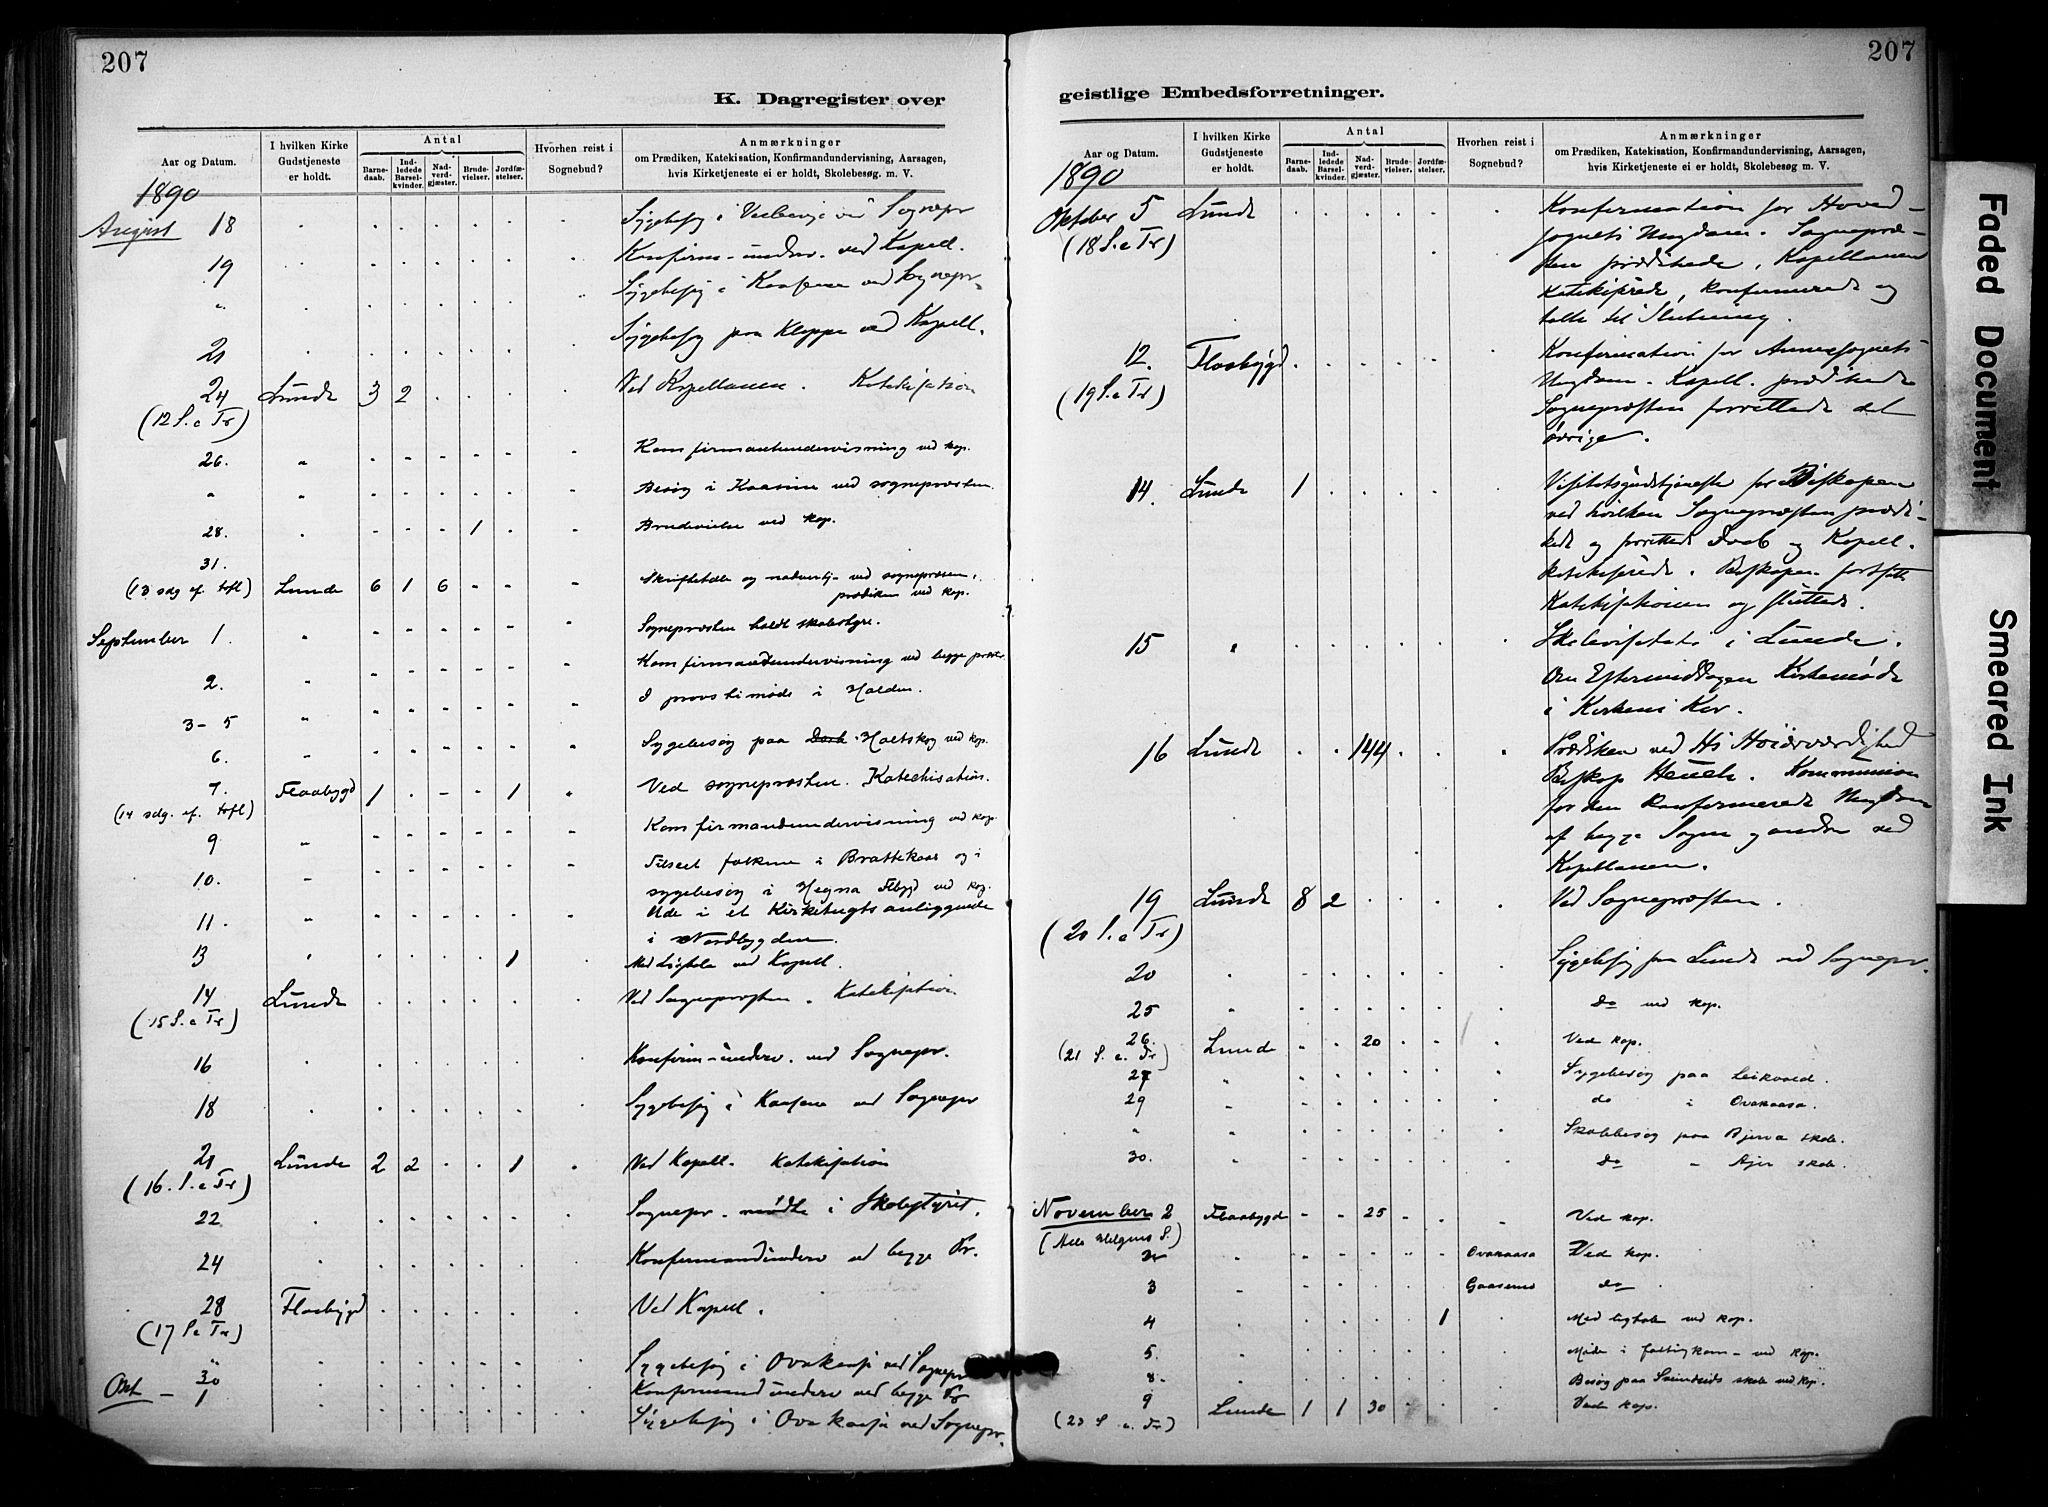 207
K. Dagregister over
Aar og Datum.
I hvilken Kirke Gudstjeneste er holdt.
Antal
Barnedaab.
Indledede Barselkvinder.
Nadverdgjæster.
Brudevielser.
Jordfæstelser.
Hvorhen reist i Sognebud?
Anmærkninger
om Prædiken, Katekisation, Konfirmandundervisning, Aarsagen,
hvis Kirketjeneste ei er holdt, Skolebesøg. m. V.
1890
August 18 Sygebesøg i ved Sognepr
19 Konfirm-underv. ved Kapell.
" Sygebesøg i Kaasene ved Sognepr.
21 Sygebesøg paa Kleppe ved Kapell.
24 Lunde 3 2 Ved Kapellanen. Katekisation
(12 S. e Tr)
26. " Konfirmantundervisning ved kap.
" " Besøg i Kaasine ved sognepræsten.
28. " 1 Brudevielse ved kap.
31.
(13 sdg ef. trfl) Lunde 6 1 6 Skriftetale og nadverdj- ved sognepræsten,
prædiken ved kap.
September 1. " Sognepræsten holdt skolestyre.
2. " Konfirmandundervisning ved begge præster
3-5 " I provstimøde i Holden.
6. " Sygebesøg paa Holtskog ved kap.
7. Flaabygd 1 1 Ved sognepræsten. Katechisation.
(14 sdg. ef. trfl)
9 " Konfirmandundervisning ved kap.
10. " Tilseet folkene i Brattekaas og i
sygebesøg i Hegna Flbygd ved kap.
11. " Ude i et Kirketugtsanliggende
i Nordbygden.
13 " 1 Med Ligtale ved Kapell.
14 Lunde Ved Sognepræsten. Katekisation
(15 S. e Tr)
16 Konfirm-underv. ved Sognepr.
18 Sygebesøg i Kaasene ved Sognepr
21 Lunde 2 2 1 Ved Kapell. Katekisation
(16. S. e Tr)
22 Sognepr. mødte i Skolestyret.
24 Konfirmandunderv ved begge Pr.
28 Flaabygd Ved Kapell.
(17 S e Tr)
" Sygebesøg i Ovakaasa ved Sognepr
30 Konfirmandunderv ved begge Pr
Okt - 1 Sygebesøg i Ovakaasa ved Sognepr.
207
geistlige Embedsforretninger.
Aar og Datum.
I hvilken Kirke Gudstjeneste er holdt.
Antal
Barnedaab.
Indledede Barselkvinder.
Nadverdgjæster.
Brudevielser.
Jordfæstelser.
Hvorhen reist i Sognebud?
Anmærkninger
om Prædiken, Katekisation, Konfirmandundervisning, Aarsagen,
hvis Kirketjeneste ei er holdt, Skolebesøg m. V.
1890
Oktober 5 Lunde Konfirmation for Hoved-
(18 S. e Tr) sognets Ungdom. Sognepræ-
sten prædikede, Kapellanen
katekiserede, konfirmerede og
talte til Slutning.
12. Flaabygd Konfirmation for Annexsognets
(19 S. e Tr) Ungdom. Kapell. prædikede
Sognepræsten forrettede det
øvrige.
14. Lunde 1 Visitatsgudstjeneste for Biskopen
ved hvilken Sognepræsten prædi-
kede og forrettede Daab og Kapell.
katekiserede. Biskopen fortsatte
Katekisationen og sluttede.
15 " Skolevisitats i Lunde.
Om Eftermiddagen Kirkemøde
i Kirkens Kor.
16 Lunde 144 Prædiken ved Hs Høiærværdighed
Biskop Heuch. Kommunion
for den konfirmerede Ungdom
af begge Sogne og andre ved
Kapellanen.
19 Lunde 8 2 Ved Sognepræsten.
(20 S. e Tr)
20 " Sygebesøg paa Lunde ved Sognepr.
25 " do ved kap.
26. Lunde 20 Ved kap.
(21 S. e. Tr)
27 " Sygebesøg paa Leikvold.
29 " do i Ovakaasa.
" " Skolebesøg paa Bjerva skole.
30. " do " Ajer skole.
November 2 Flaabygd 25 Ved kap.
(Alle Helgens S.)
" " Ovakaasa Ved kap.
3 " Gaasenes do
4 " 1 Med ligtale ved kap.
5. " Møde i fattigkom- ved kap.
8. " Besøg paa skole ved kap.
9 Lunde 1 1 30 Ved kap.
(23 S. e. Tr)
Faded Document
Smeared Ink